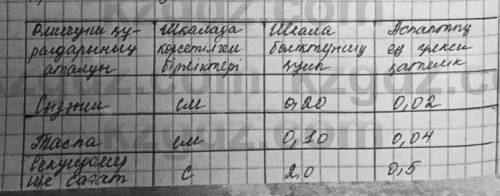 Өлшеуіш құ- Шкалада Шкала Аспаптың
ралдарының көрсетілген бөліктерінің ең үлкен
аталуы бірліктері құны қателік
Сызғыш см 0,20 0,02
Таспа см 0,10 0,04
Секундомер
не сағат с 2,0 0,5